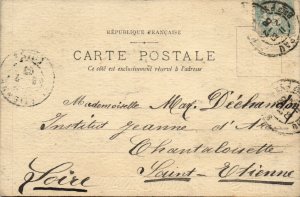 RÉPUBLIQUE FRANÇAISE
CARTE POSTALE
Ce côté est exclusivement réservé à l'adresse
Mademoiselle Max. Déchandon
Institut Jeanne d'Arc
Chantaloisette
Saint-Etienne
Loire